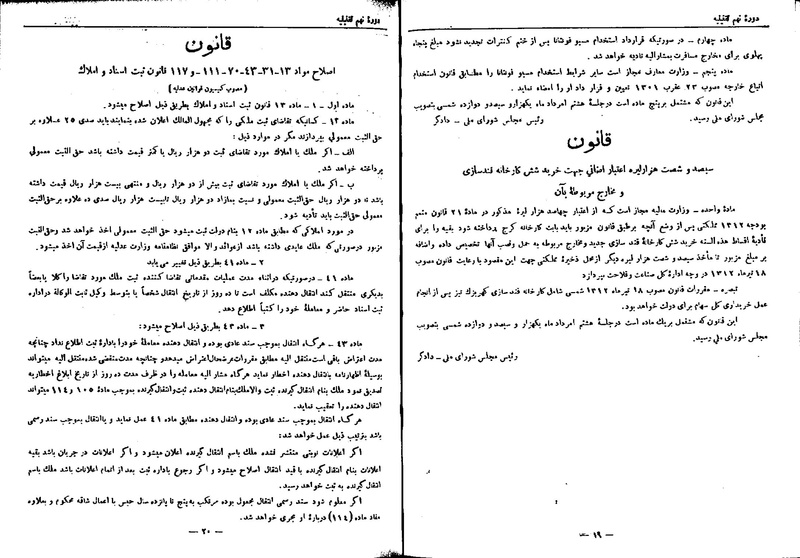 دورهٔ نهم تقنینیه
ماده چهارم – در صورتیکه قرارداد استخدام مسیو فونتانا پس از ختم کنترات تجدید نشود مبلغ پنجاه
پهلوی برای مخارج مسافرت بمشارالیه تادیه خواهد شد.
ماده پنجم – وزارت معارف مجاز است سایر شرایط استخدام مسیو فونتانا را مطابق قانون استخدام
اتباع خارجه مصوب ۲۳ عقرب ۱۳۰۱ تعیین و قرارداد او را امضاء نماید.
این قانون که مشتمل بر پنج ماده است در جلسهٔ هشتم امرداد ماه یکهزار و سیصد و دوازده شمسی بتصویب
مجلس شورای ملی رسید.
رئیس مجلس شورای ملی – دادگر
قانون
سیصد و شصت هزار لیره اعتبار اضافی جهت خرید شش کارخانه قندسازی
و مخارج مربوطهٔ بآن
مادهٔ واحده – وزارت مالیه مجاز است که از اعتبار چهارصد هزار لیرهٔ مذکور در مادهٔ ۲۱ قانون متمم
بودجه ۱۳۱۲ مملکتی پس از وضع آنچه بر طبق قانون مزبور باید بابت کارخانه کرج پرداخته شود بقیه را برای
تأدیهٔ اقساط هذه السنه خرید شش کارخانهٔ قند سازی جدید و مخارج مربوطه به حمل و نصب آنها تخصیص داده و اضافه
بر مبلغ مزبور تا مأخذ سیصد و شصت هزار لیره دیگر از محل ذخیرهٔ مملکتی جهت این مقصود با رعایت قانون مصوب
۱۸ تیر ماه ۱۳۱۲ در وجه ادارهٔ کل صناعت و فلاحت بپردازد
تبصره – مقررات قانون مصوب ۱۸ تیر ماه ۱۳۱۲ شمسی شامل کارخانه قند سازی کهریزک نیز پس از انجام
عمل خریداری کل سهام برای دولت خواهد بود.
این قانون که مشتمل بر یک ماده است در جلسهٔ هشتم امرداد ماه یکهزار و سیصد و دوازده شمسی بتصویب
مجلس شورای ملی رسید.
رئیس مجلس شورای ملی – دادگر
– ۱۹ –
دورهٔ نهم تقنینیه
قانون
اصلاح مواد ۱۳-۳۱-۴۳-۷۰-۱۱۱- و ۱۱۷ قانون ثبت اسناد و املاک
(مصوب کمیسیون قوانین عدلیه)
ماده اول – ۱ – ماده ۱۳ قانون ثبت اسناد و املاک بطریق ذیل اصلاح میشود.
ماده ۱۳ – کسانیکه تقاضای ثبت ملکی را که مجهول المالک اعلان شده بنمایند باید صدی ۲۵ علاوه بر
حق الثبت معمولی بپردازند مگر در موارد ذیل:
الف – اگر ملک یا املاک مورد تقاضای ثبت دو هزار ریال یا کمتر قیمت داشته باشد حق الثبت معمولی
پرداخته خواهد شد.
ب – اگر ملک یا املاک مورد تقاضای ثبت بیش از دو هزار ریال و منتهی بیست هزار ریال قیمت داشته
باشد تا دو هزار ریال حق الثبت معمولی و نسبت بمازاد دو هزار ریال تا بیست هزار ریال صدی ده علاوه بر حق الثبت
معمولی حق الثبت باید تأدیه شود.
در مورد املاکی که مطابق ماده ۱۲ بنام دولت ثبت میشود حق الثبت معمولی اخذ خواهد شد و حق الثبت
مزبور در صورتی که ملک عایدی داشته باشد از عوائد والا موافق نظامنامه وزارت عدلیه از قیمت آن اخذ میشود.
۲ – ماده ۴۱ بطریق ذیل تغییر می یابد
ماده ۴۱ – در صورتیکه در اثناء مدت عملیات مقدماتی تقاضا کننده ثبت ملک مورد تقاضا را کلا یا بعضاً
بدیگری منتقل کند انتقال دهنده مکلف است تا ده روز از تاریخ انتقال شخصاً یا بتوسط وکیل ثابت الوکاله در اداره
ثبت اسناد حاضر و معاملهٔ خود را کتباً اطلاع دهد.
۳ – ماده ۴۳ بطریق ذیل اصلاح میشود:
ماده ۴۳ – هر گاه انتقال بموجب سند عادی بوده و انتقال دهنده معاملهٔ خود را بادارهٔ ثبت اطلاع نداد چنانچه
مدت اعتراض باقی است منتقل الیه مطابق مقررات عرضحال اعتراض میدهد و چنانچه مدت منقضی شده منتقل الیه میتواند
بوسیلهٔ اظهارنامه بانتقال دهنده اخطار نماید هر گاه مشار الیه معامله را در ظرف مدت ده روز از تاریخ ابلاغ اخطاریه
تصدیق نمود ملک بنام انتقال گیرنده ثبت والا ملک بنام انتقال دهنده ثبت و انتقال گیرنده بموجب مادهٔ ۱۰۵ و ۱۱۴ میتواند
انتقال دهنده را تعقیب نماید.
هر گاه انتقال بموجب سند عادی بوده و انتقال دهنده مطابق ماده ۴۱ عمل نماید و یا انتقال بموجب سند رسمی
باشد بترتیب ذیل عمل خواهد شد:
اگر اعلانات نوبتی منتشر نشده ملک باسم انتقال گیرنده اعلان میشود و اگر اعلانات در جریان باشد بقیه
اعلانات بنام انتقال گیرنده با قید انتقال اصلاح میشود و اگر رجوع باداره ثبت بعد از اتمام اعلانات باشد ملک باسم
انتقال گیرنده به ثبت خواهد رسید.
اگر معلوم شود سند رسمی انتقال مجعول بوده مرتکب به پنج تا پانزده سال حبس با اعمال شاقه محکوم و بعلاوه
مفاد ماده (۱۱۴) دربارهٔ او مجری خواهد شد.
– ۲۰ –